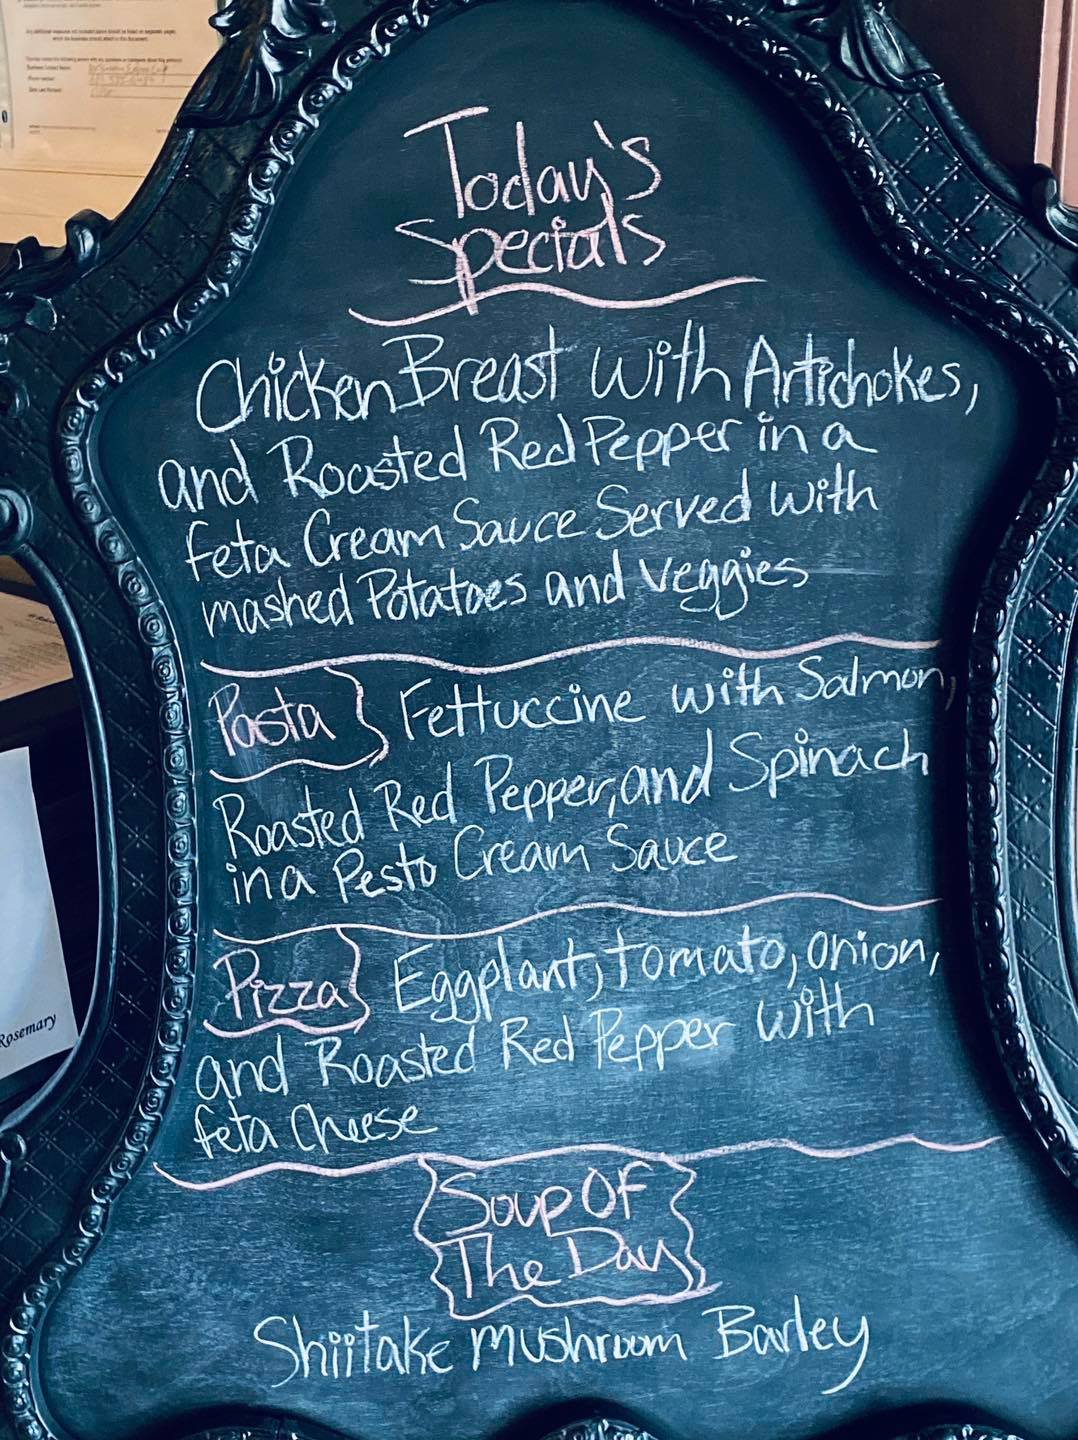 Today's
Specials
Chicken Breast with Artichokes,
and Roasted Red Pepper in a
feta Cream Sauce Served with
mashed Potatoes and veggies
Pasta Fettuccine with Salmon,
Roasted Red Pepper, and Spinach
in a Pesto Cream Sauce
Pizza Eggplant, tomato, onion,
and Roasted Red Pepper with
feta Cheese
Soup Of
The Day
Shiitake mushroom Barley
Rosemary